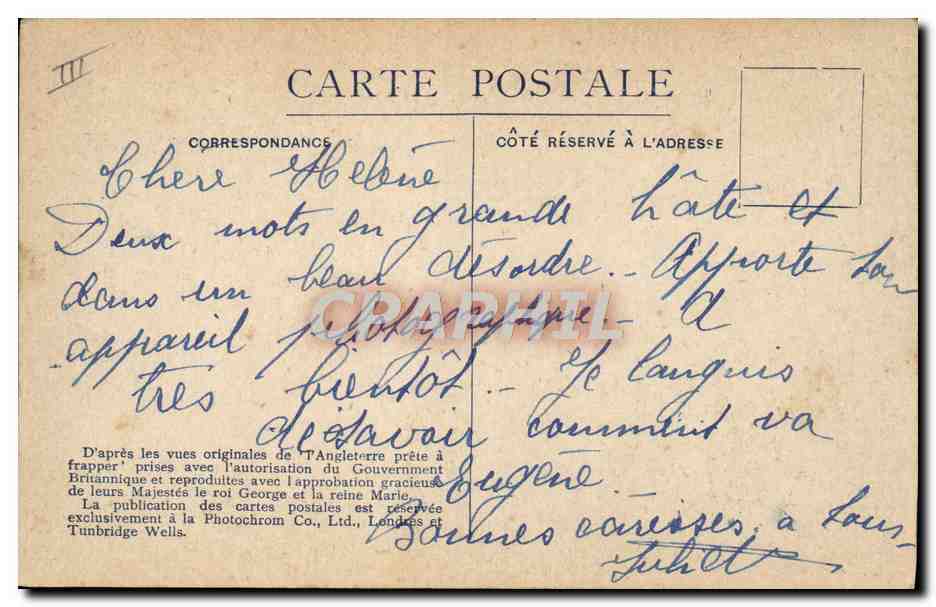 III
CARTE POSTALE
CORRESPONDANCE
CÔTÉ RÉSERVÉ À L'ADRESSE
Chère Hélène
Deux mots en grande hâte et
dans un beau désordre. - Apporte ton
appareil photographique - A
très bientôt. - Je languis
de savoir comment va
Eugène.
Bonnes caresses à tous -
Juliet
CRAPHIL
D'après les vues originales de "l'Angleterre prête à
frapper" prises avec l'autorisation du Gouvernment
Britannique et reproduites avec l'approbation gracieuse
de leurs Majestés le roi George et la reine Marie.
La publication des cartes postales est réservée
exclusivement à la Photochrom Co., Ltd., Londres et
Tunbridge Wells.